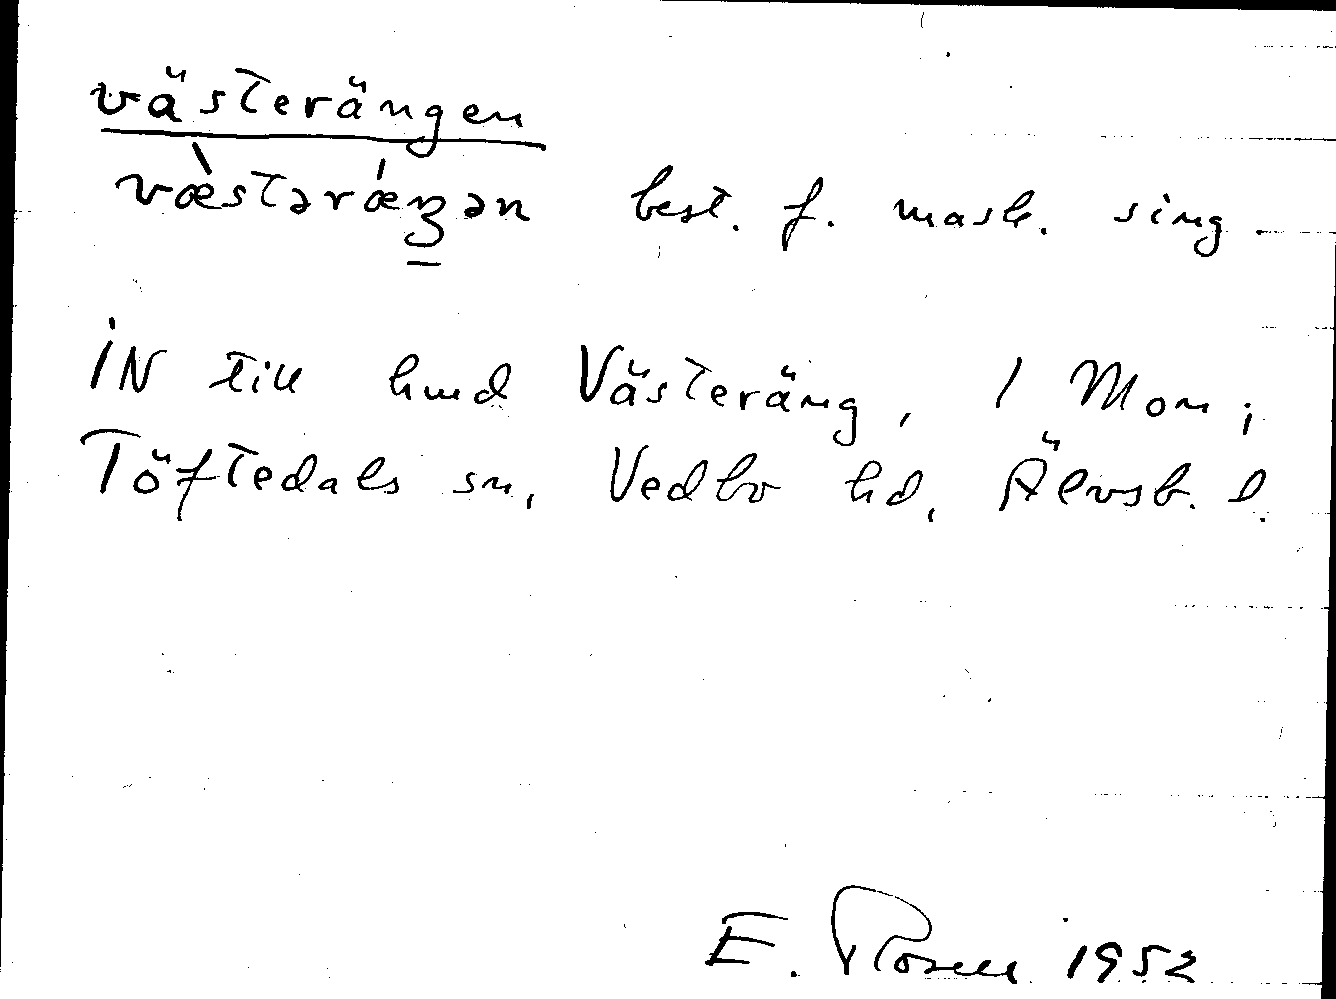 västerängen
væ̀stərǽŋən best. f. mask. sing.
IN till hmd Västeräng, 1 Mom;
Töftedals sn, Vedbo hd, Älvsb. l.
E. Rosell 1952